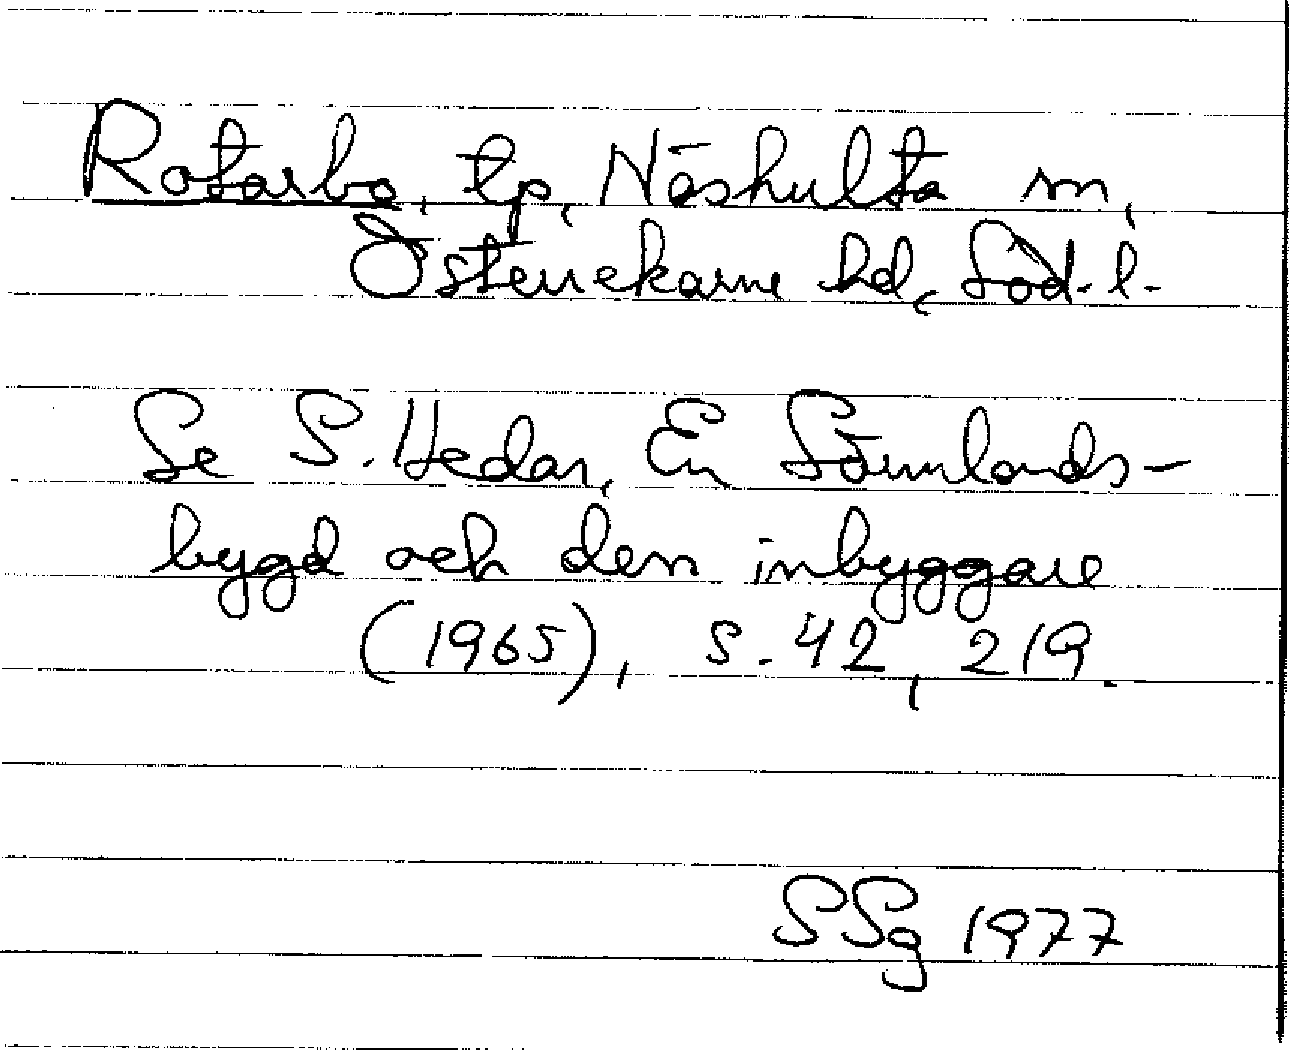 Rotarbo, tp, Näshulta sn,
Österrekarne hd, Söd. l.
Se S. Hedar, En Sörmlands-
bygd och den inbyggare
(1965), s. 42, 219.
SSg 1977